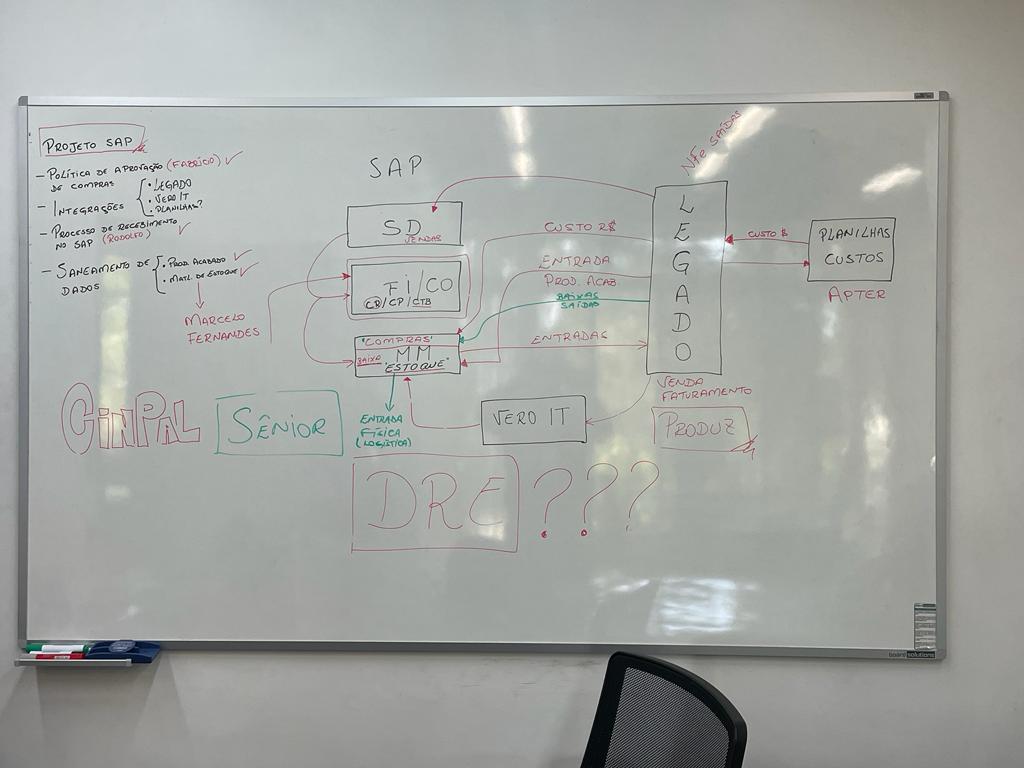 PROJETO SAP
- POLÍTICA DE APROVAÇÃO (FABRÍCIO) ✓
DE COMPRAS
- INTEGRAÇÕES { • LEGADO
• VERO IT
• PLANILHAS?
- PROCESSO DE RECEBIMENTO
NO SAP (RODOLFO) ✓
- SANEAMENTO DE { • PROD. ACABADO ✓
DADOS • MATL. DE ESTOQUE ✓
MARCELO
FERNANDES
SAP
SD
VENDAS
FI/CO
CR/CP/CTB
"COMPRAS"
BAIXA MM
"ESTOQUE"
ENTRADA
FÍSICA
(LOGÍSTICA)
CUSTO R$
ENTRADA
PROD. ACAB.
BAIXAS
SAÍDAS
ENTRADAS
NFe SAÍDAS
LEGADO
CUSTO $
PLANILHAS
CUSTOS
APTER
VENDA
FATURAMENTO
PRODUZ
VERO IT
CINPAL
SÊNIOR
DRE ???
board solutions